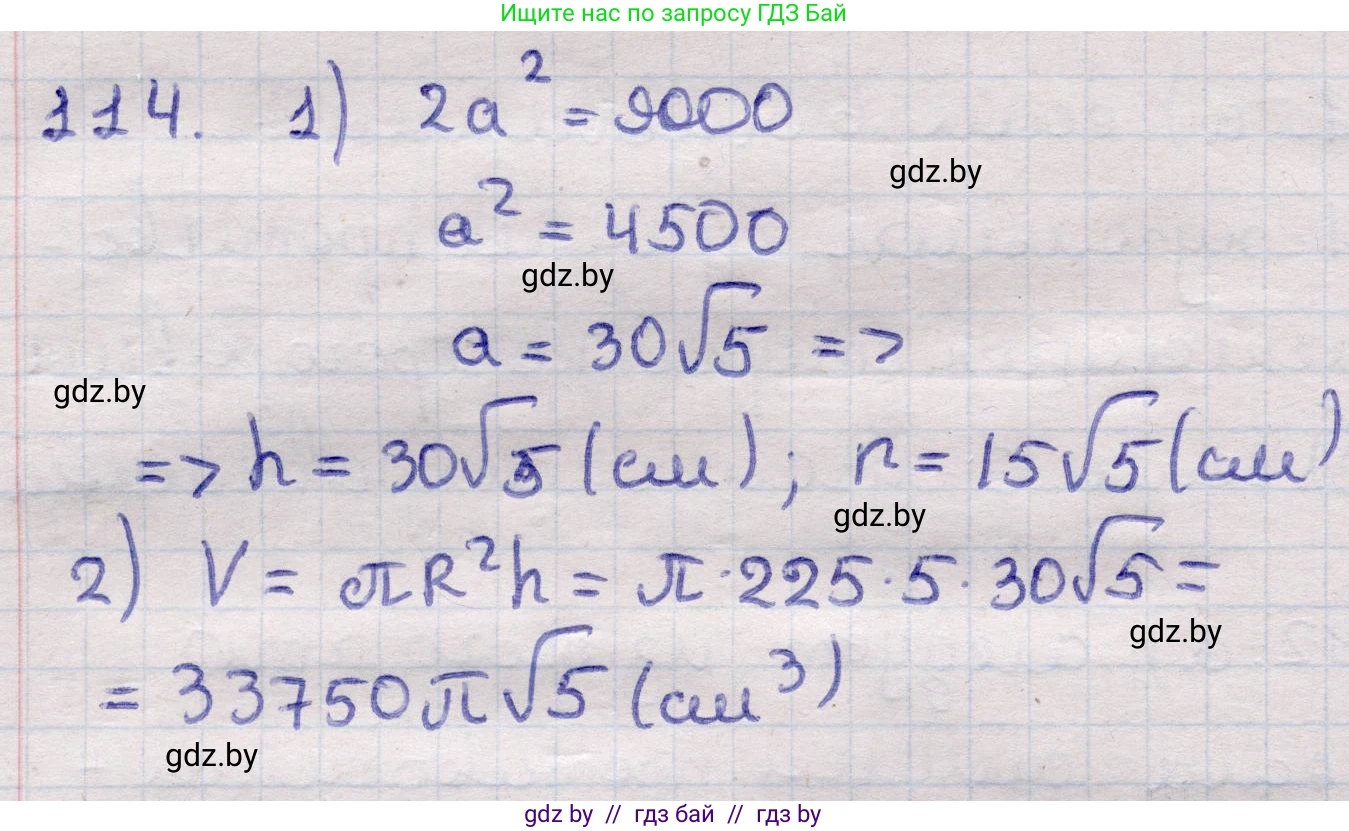 Ищите нас по запросу ГДЗ Бай
114. 1) 2a² = 9000
gdz.by
a² = 4500
gdz.by
a = 30√5 =>
gdz.by
=> h = 30√5 (см); r = 15√5 (см)
gdz.by
2) V = πR²h = π·225·5·30√5 =
gdz.by
= 33750π√5 (см³)
gdz.by
gdz.by // гдз бай // гдз by